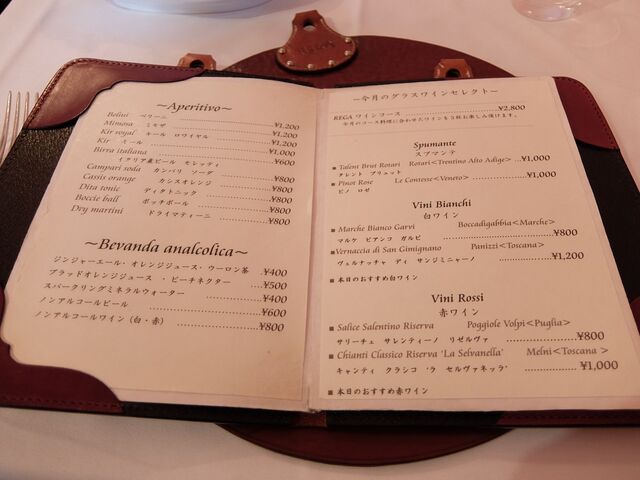 ~Aperitivo~
Belini ベリーニ ¥1,200
Mimosa ミモザ ¥1,200
Kir royal キール ロワイヤル ¥1,200
Kir キール ¥1,000
Birra italiana ¥600
イタリア産ビール モレッティ
Campari soda カンパリ ソーダ ¥800
Cassis orange カシスオレンジ ¥800
Dita tonic ディタトニック ¥800
Boccie ball ボッチボール ¥800
Dry martini ドライマティーニ ¥800
~Bevanda analcolica~
ジンジャーエール・オレンジジュース・ウーロン茶 ¥400
ブラッドオレンジジュース ・ピーチネクター ¥500
スパークリングミネラルウォーター ¥400
ノンアルコールビール ¥600
ノンアルコールワイン (白・赤) ¥800
~今月のグラスワインセレクト~
REGA ワインコース ¥2,800
今月のコース料理に合わせたワインを3杯お楽しみ頂けます。
Spumante
スプマンテ
■ Talent Brut Rotari Rotari<Trentino Alto Adige> ¥1,000
タレント ブリュット
■ Pinot Rose Le Contesse<Veneto> ¥1,000
ピノ ロゼ
Vini Bianchi
白ワイン
■ Marche Bianco Garvi Boccadigabbia<Marche>
マルケ ビアンコ ガルビ ¥800
■ Vernaccia di San Gimignano Panizzi<Toscana>
ヴェルナッチャ ディ サンジミニャーノ ¥1,200
■ 本日のおすすめ白ワイン
Vini Rossi
赤ワイン
■ Salice Salentino Riserva Poggiole Volpi<Puglia>
サリーチェ サレンティーノ リゼルヴァ ¥800
■ Chianti Classico Riserva 'La Selvanella' Melni<Toscana >
キャンティ クラシコ 'ラ セルヴァネッラ' ¥1,000
■ 本日のおすすめ赤ワイン